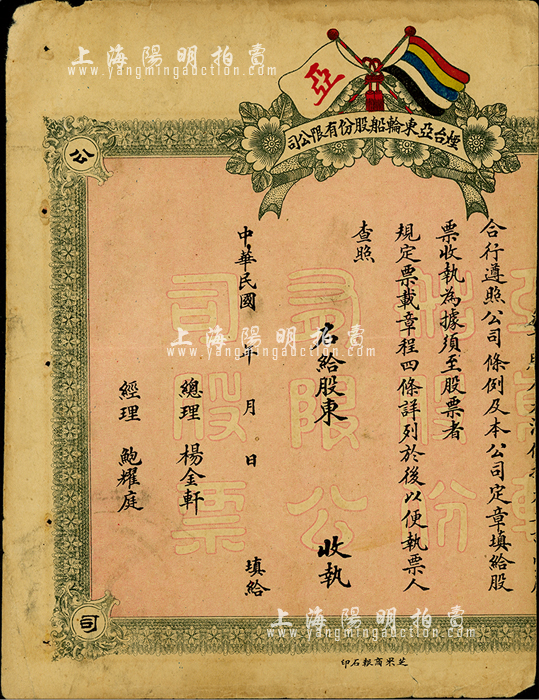 亞
煙台亞東輪船股份有限公司
公
合行遵照公司條例及本公司定章填給股
票收執為據須至股票者
規定票載章程四條詳列於後以便執票人
查照
右給股東 收執
中華民國 年 月 日 填給
總理 楊金軒
經理 鮑耀庭
司
司股票
有限公
股份
芝罘商報石印
上海陽明拍賣
www.yangmingauction.com
上海陽明拍賣
www.yangmingauction.com
上海陽明拍賣
www.yangmingauction.com